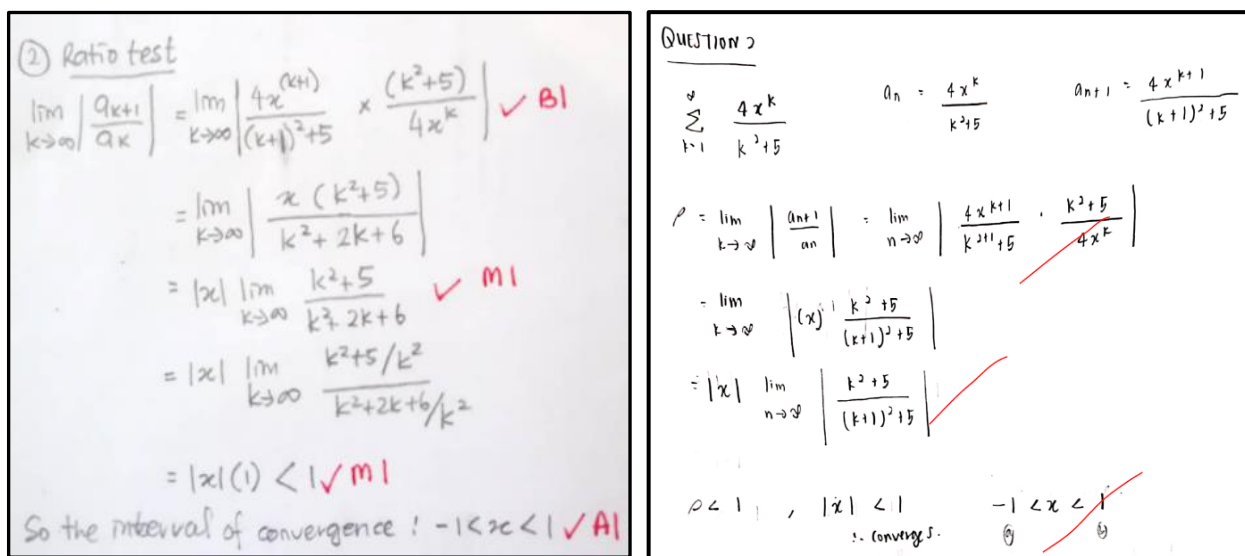 ② Ratio test
lim k→∞ |a_{k+1}/a_k| = lim k→∞ |4x^{(k+1)}/((k+1)²+5) × (k²+5)/4x^k| ✓ B1
= lim k→∞ |x(k²+5)/(k²+2k+6)|
= |x| lim k→∞ (k²+5)/(k²+2k+6) ✓ M1
= |x| lim k→∞ (k²+5/k²)/(k²+2k+6/k²)
= |x|(1) < 1 ✓ M1
So the interval of convergence : -1<x<1 ✓ A1
QUESTION 2
∞ Σ k=1 4x^k/(k²+5)    a_n = 4x^k/(k²+5)    a_{n+1} = 4x^{k+1}/((k+1)²+5)
ρ = lim k→∞ |a_{n+1}/a_n| = lim n→∞ |4x^{k+1}/(k^{2+1}+5) · (k²+5)/4x^k|
= lim k→∞ |(x)^1 (k²+5)/((k+1)²+5)|
= |x| lim n→∞ |(k²+5)/((k+1)²+5)|
ρ < 1 , |x| < 1    -1 < x < 1
∴ converges.